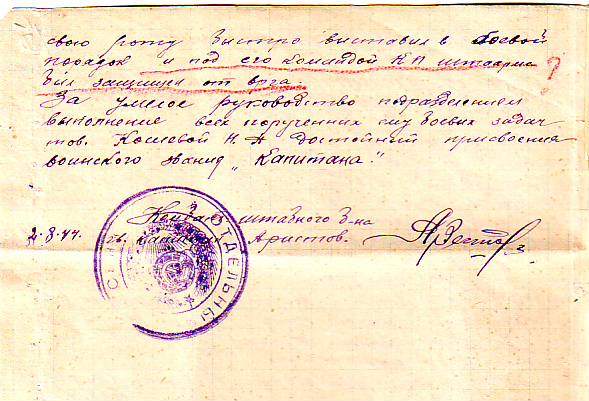 свою роту быстро выставил в боевой
порядок и под его командой КП штаарма
был защищен от врга.
За умелое руководство подразделением
выполнение всех порученных ему боевых задач
тов. Кошевой Н. А достойный присвоения
воинского звания „Капитана."
штабного б-на
2.8.44. Аристов.
ОТДЕЛЬНЫ